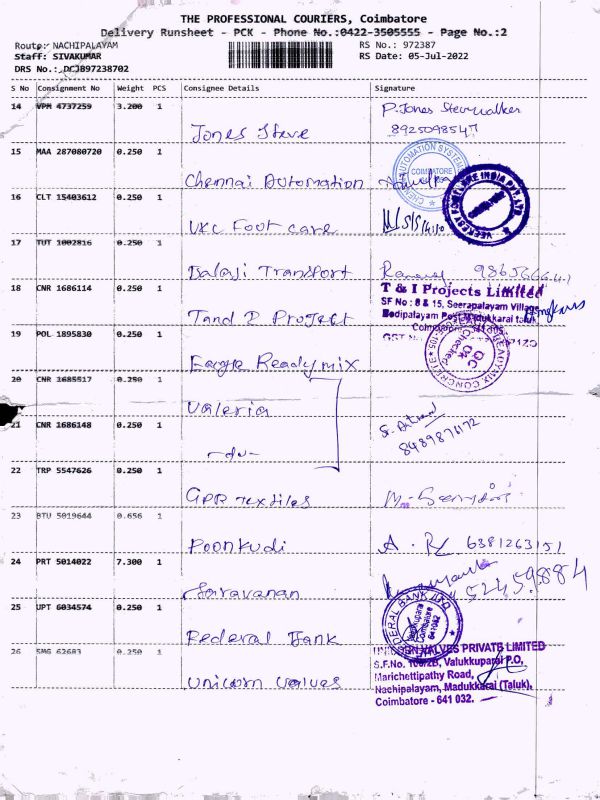 THE PROFESSIONAL COURIERS, Coimbatore
Delivery Runsheet - PCK - Phone No.:0422-3505555 - Page No.:2
Route: NACHIPALAYAM RS No.: 972387
Staff: SIVAKUMAR RS Date: 05-Jul-2022
DRS No.: DCJB97238702
S No Consignment No Weight PCS Consignee Details Signature
14 VPM 4737259 3.200 1 P. Jones
Jones Steve 8925098547
15 MAA 287080720 0.250 1
Chennai Automation COIMBATORE
16 CLT 15403612 0.250 1
VKC Foot care
17 TUT 1002816 0.250 1
Balaji Transport
18 CNR 1686114 0.250 1 T & I Projects Limited
SF No : 8 & 15, Seerapalayam Village
T and I Project Bodipalayam Post, Madukkarai taluk,
19 POL 1895830 0.250 1
Eagle Readymix QC OK Checked
20 CNR 1685517 0.250 1
Valeria
21 CNR 1686148 0.250 1
-do- 8489876172
22 TRP 5547626 0.250 1
GPR Textiles
23 BTU 5019644 0.656 1
Poonkudi A. R 6381263151
24 PRT 5014022 7.300 1
Saravanan
25 UPT 6034574 0.250 1 FEDERAL BANK LTD
Federal Bank Coimbatore
26 SMG 62683 0.250 1 UNICORN VALVES PRIVATE LIMITED
S.F.No. 100/2B, Valukkuparai P.O,
Unicorn Valves Marichettipathy Road,
Nachipalayam, Madukkarai (Taluk),
Coimbatore - 641 032.